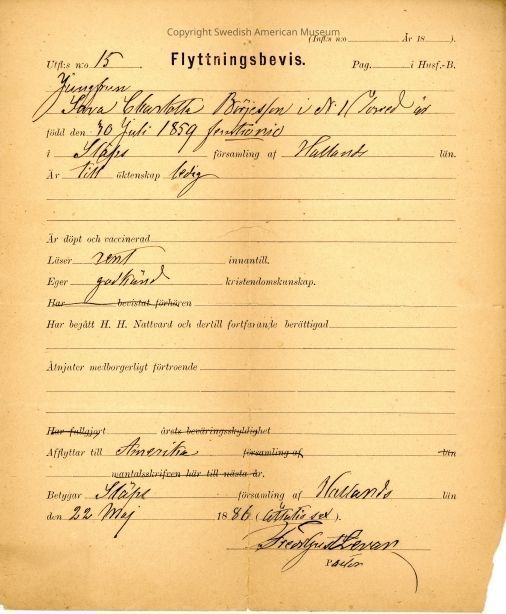 Copyright Swedish American Museum
(Infl:s n:o År 18 ).
Utfl:s n:o 15. Flyttningsbevis. Pag. i Husf.-B.
Jungfrun
Charlotta Börjesson i N. 1 är
född den 30 Juli 1859 femtionio
i Släps församling af Hallands län.
Är till äktenskap ledig
Är döpt och vaccinerad
Läser rent innantill.
Eger godkänd kristendomskunskap.
Har bevistat förhören
Har begått H. H. Nattvard och dertill fortfarande berättigad
Åtnjuter medborgerligt förtroende
Har fullgjort årets beväringsskyldighet
Afflyttar till Amerika församling af län
mantalsskrifven här till nästa år.
Betygar Släps församling af Hallands län
den 22 Maj 1886 (åttatiosex).
Levan
Pastor